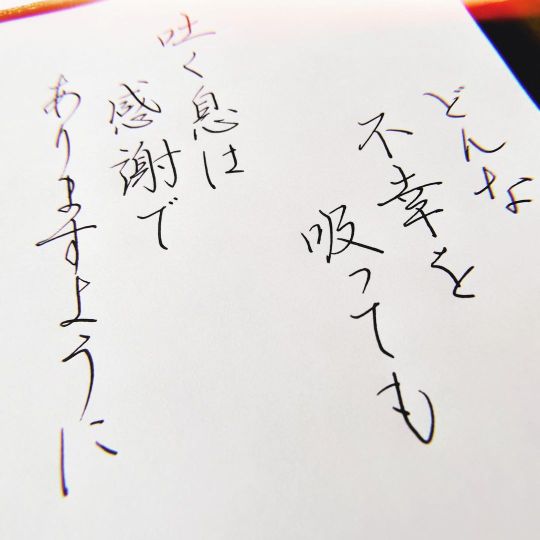 どんな
不幸を
吸っても
吐く息は
感謝で
ありますように